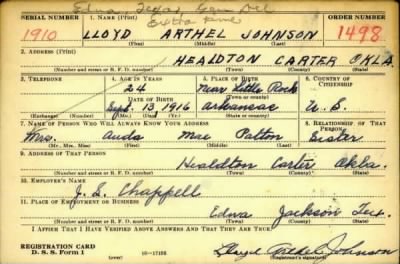 Edna, Texas, Gen Del
SERIAL NUMBER 1. NAME (Print) ORDER NUMBER
1910 LLOYD ARTHEL JOHNSON 1498
(First) (Middle) (Last)
2. ADDRESS (Print)
HEALDTON CARTER OKLA.
(Number and street or R. F. D. number) (Town) (County) (State)
3. TELEPHONE 4. AGE IN YEARS 5. PLACE OF BIRTH 6. COUNTRY OF CITIZENSHIP
24 Near Little Rock
DATE OF BIRTH (Town or county)
Sept. 13 1916 Arkansas U. S.
(Exchange) (Number) (Mo.) (Day) (Yr.) (State or country)
7. NAME OF PERSON WHO WILL ALWAYS KNOW YOUR ADDRESS 8. RELATIONSHIP OF THAT PERSON
Mrs. Auda Mae Patton Sister
(Mr., Mrs., Miss) (First) (Middle) (Last)
9. ADDRESS OF THAT PERSON
Healdton Carter Okla.
(Number and street or R. F. D. number) (Town) (County) (State)
10. EMPLOYER'S NAME
J. E. Chappell
11. PLACE OF EMPLOYMENT OR BUSINESS
Edna Jackson Tex.
(Number and street or R. F. D. number) (Town) (County) (State)
I AFFIRM THAT I HAVE VERIFIED ABOVE ANSWERS AND THAT THEY ARE TRUE.
REGISTRATION CARD
D. S. S. Form 1 Lloyd Arthel Johnson
(Registrant's signature)